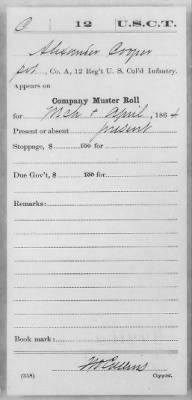 C 12 U.S.C.T.
Alexander Cooper
pvt, Co. A, 12 Reg't U. S. Col'd Infantry.
Appears on
Company Muster Roll
for Mch & April, 1864
Present or absent present
Stoppage, $ 100 for
Due Gov't, $ 100 for
Remarks:
Book mark:
(358) Copyist.